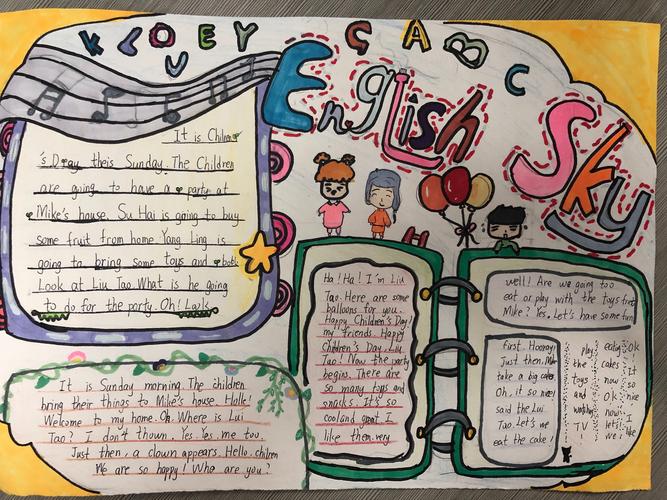 K L O V E Y
C A B C
English
Sky
It is Children
's Day theis Sunday. The Children
are going to have a party at
Mike's house. Su Hai is going to buy
some fruit from home Yang Ling is
going to bring some toys and
Look at Liu Tao What is he going
to do for the party. Oh! Look
It is Sunday morning. The children
bring their things to Mike's house. Hallk!
Welcome to my home. Oh. Where is Lui
Tao? I don't thown. Yes. Yes. me too.
Just then, a clown appears. Hello. chilren
We are so happy! Who are you?
Ha! Ha! I'm Liu
Tao. Here are some
balloons for you.
Happy Children's Day!
my friends. Happy
Children's Day. Liu
Tao! Now the party
begins. There are
so many toys and
snacks. It's so
cooland great I
like them very
well! Are we going too
eat or play with the Toys first
Mike? Yes. Let's have some fun
first. Hooray!
Just then.
take a big cake
Oh, it so nice
said the Lui
Tao. Let's we
eat the cake!
play
the
Toys
and
TV
eating
cakes
now
Ok
now
let's
we!
Ok
!
It
so
nice
I
like